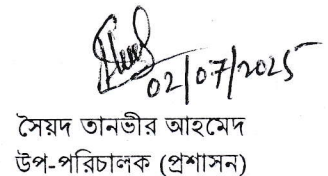 02/07/2025
সৈয়দ তানভীর আহমেদ
উপ-পরিচালক (প্রশাসন)